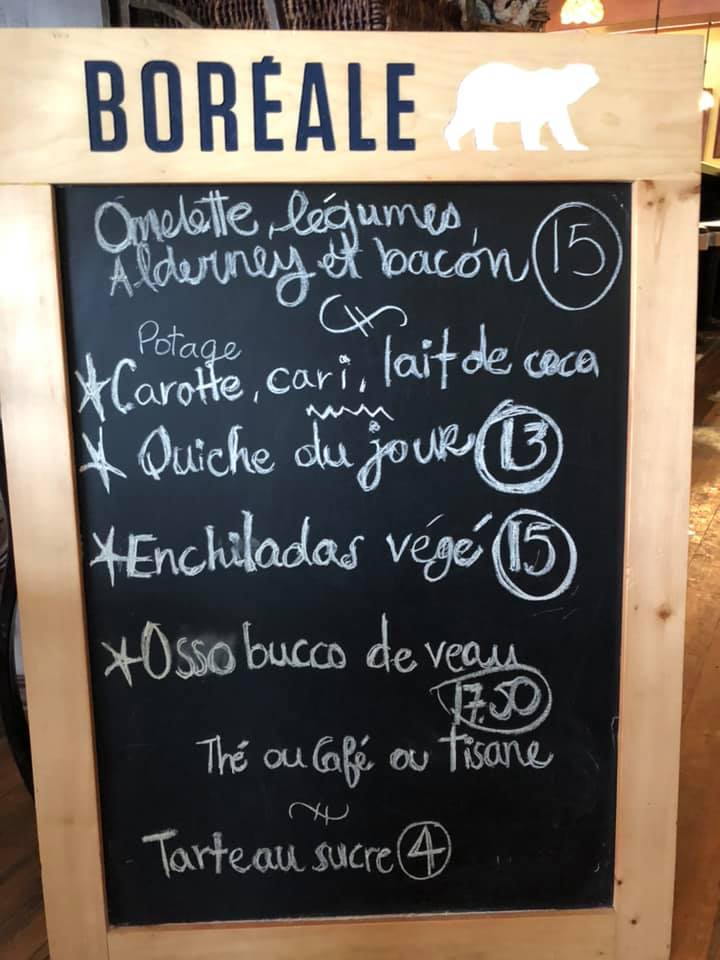 BORÉALE
Omelette, légumes,
Alderney et bacon 15
Potage
Carotte, cari, lait de coca
Quiche du jour 13
Enchiladas végé 15
Osso bucco de veau
17.50
Thé ou Café ou Tisane
Tarte au sucre 4